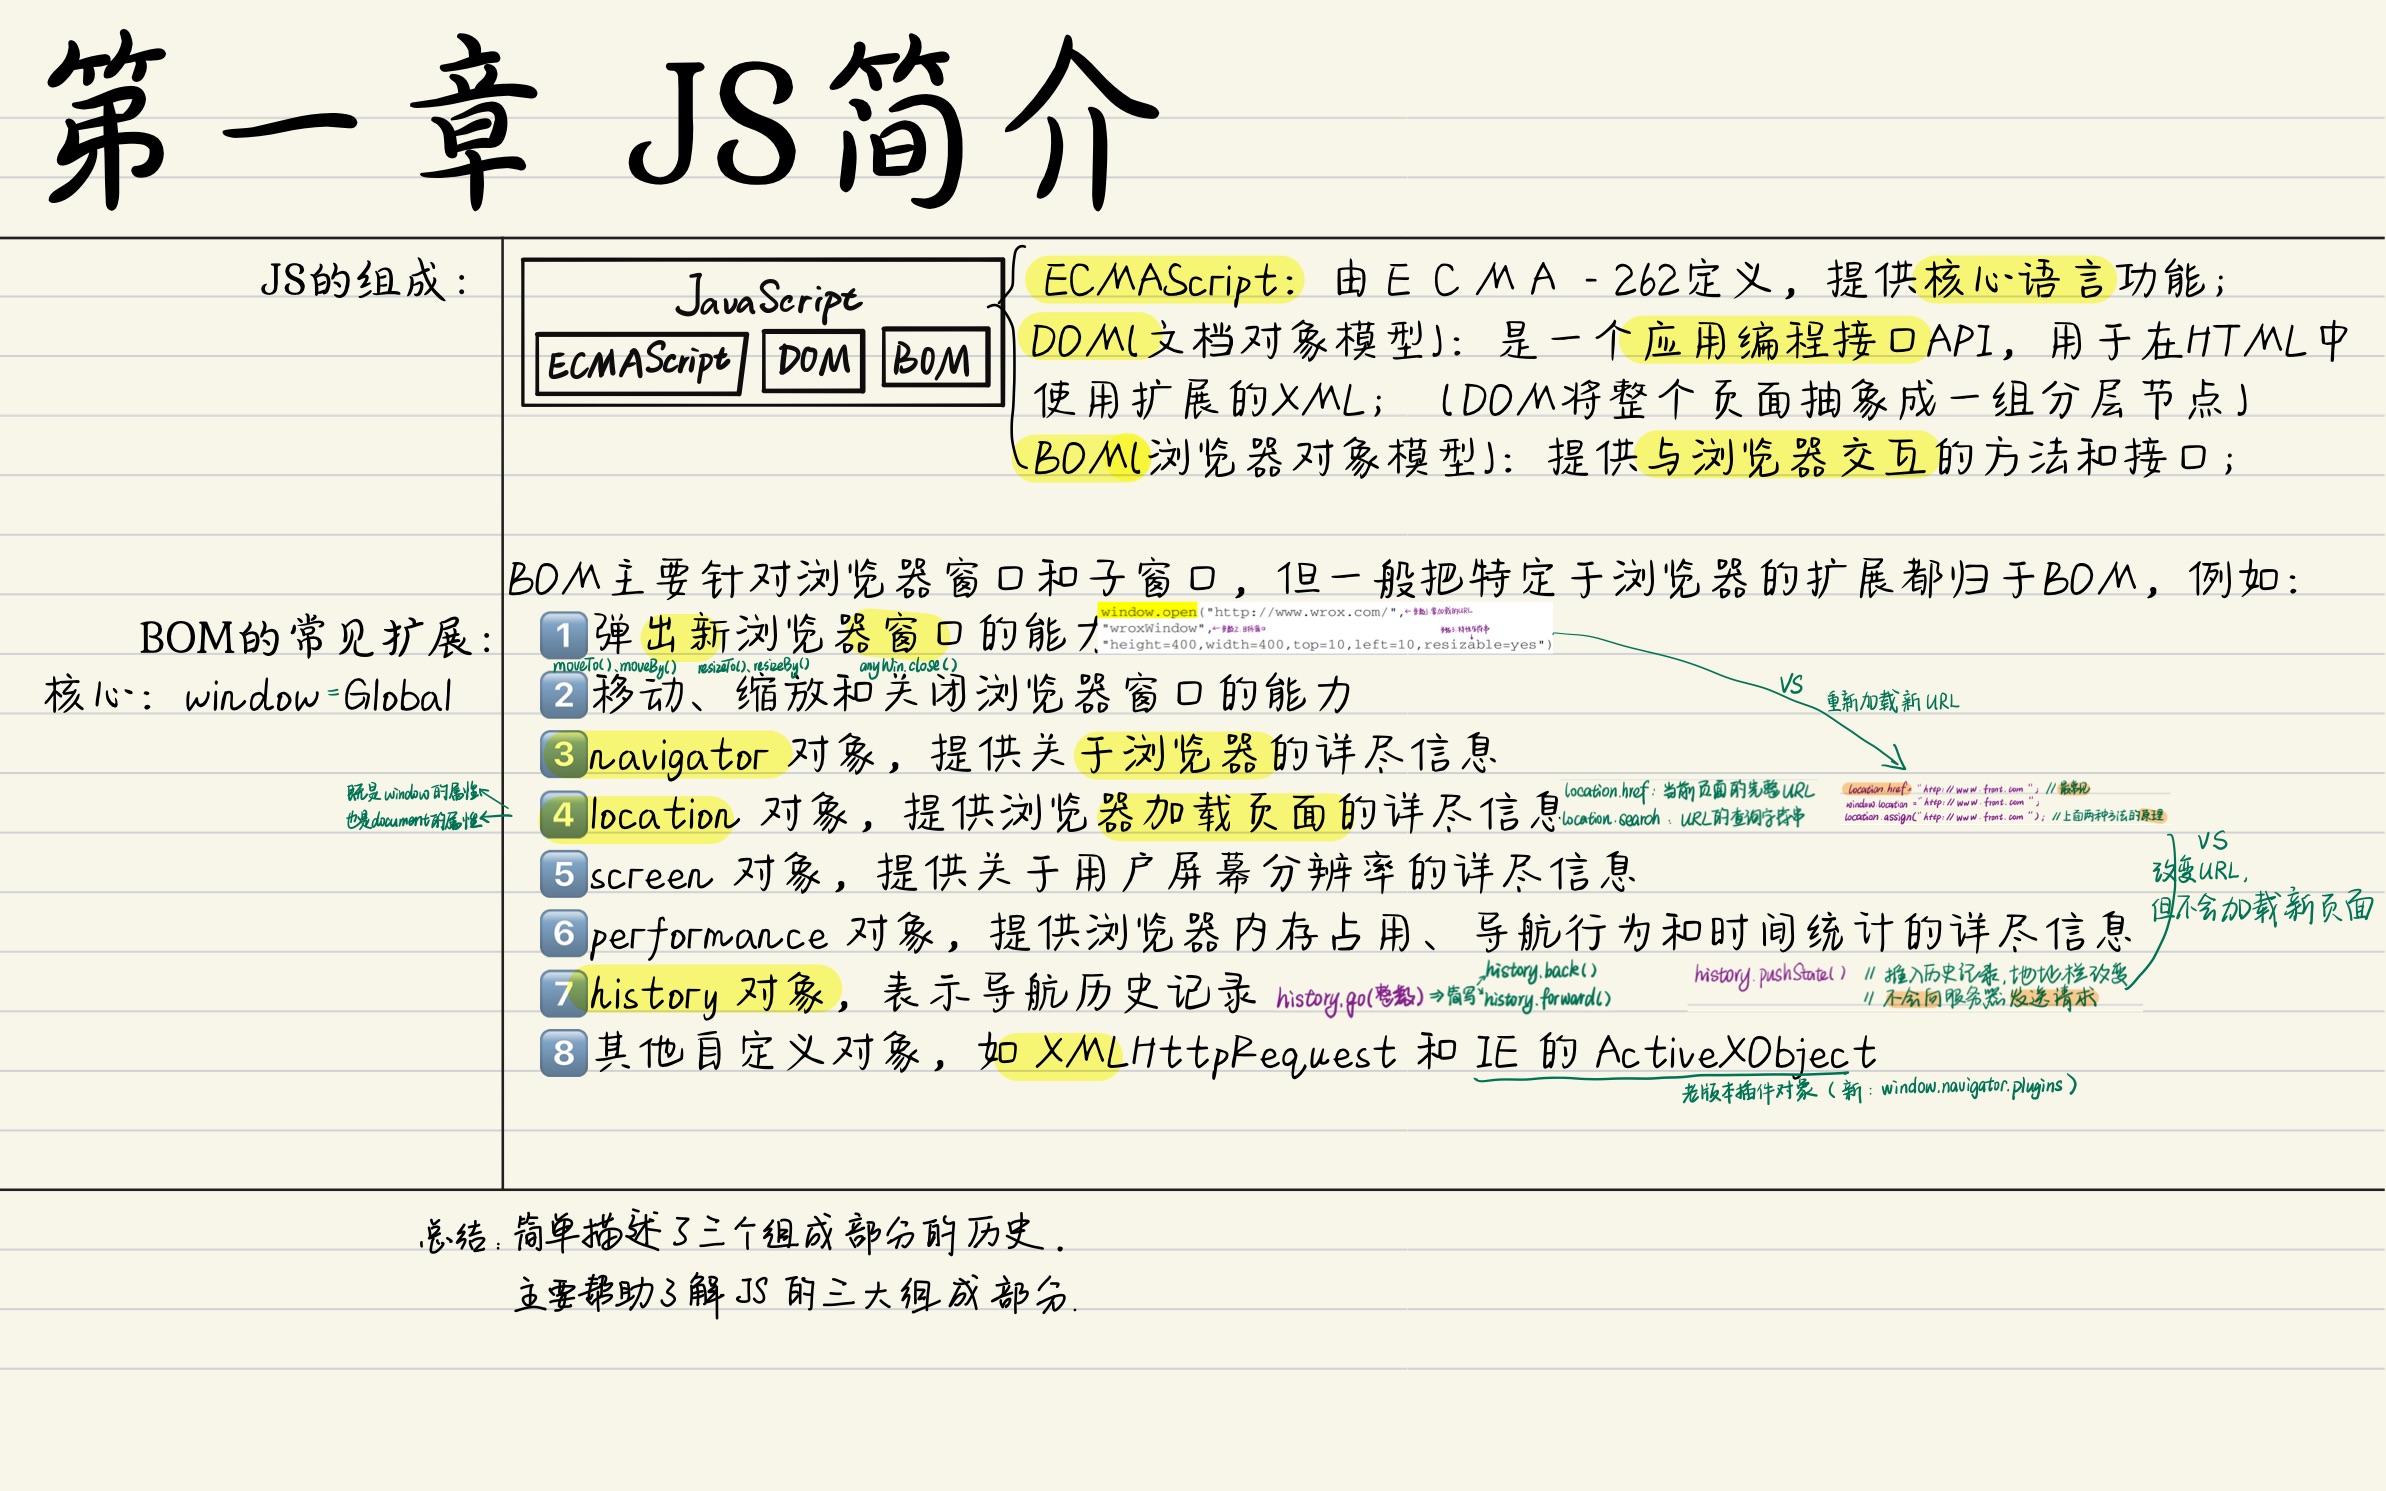 第一章 JS简介
JS的组成：
JavaScript
ECMAScript DOM BOM
ECMAScript: 由ECMA-262定义，提供核心语言功能；
DOM(文档对象模型)：是一个应用编程接口API，用于在HTML中
使用扩展的XML；（DOM将整个页面抽象成一组分层节点）
BOM(浏览器对象模型)：提供与浏览器交互的方法和接口；
BOM主要针对浏览器窗口和子窗口，但一般把特定于浏览器的扩展都归于BOM，例如：
BOM的常见扩展：
核心：window=Global
1 弹出新浏览器窗口的能力
window.open("http://www.wrox.com/", ←参数1.要加载的URL
"wroxWindow", ←参数2.目标窗口 参数3.特性字符串
"height=400,width=400,top=10,left=10,resizable=yes")
moveTo()、moveBy() resizeTo()、resizeBy() anyWin.close()
2 移动、缩放和关闭浏览器窗口的能力
VS
重新加载新URL
3 navigator 对象，提供关于浏览器的详尽信息
既是window的属性
也是document的属性
4 location 对象，提供浏览器加载页面的详尽信息
location.href：当前页面的完整URL
location.search：URL的查询字符串
location.href= "http://www.front.com"; //最常见
window.location = "http://www.front.com";
location.assign("http://www.front.com"); //上面两种方法的原理
VS
改变URL，
但不会加载新页面
5 screen 对象，提供关于用户屏幕分辨率的详尽信息
6 performance 对象，提供浏览器内存占用、导航行为和时间统计的详尽信息
7 history 对象，表示导航历史记录
history.go(整数) ⇒简写
history.back()
history.forward()
history.pushState() // 推入历史记录,地址栏改变
// 不会向服务器发送请求
8 其他自定义对象，如 XMLHttpRequest 和 IE 的 ActiveXObject
老版本插件对象（新：window.navigator.plugins）
总结：简单描述了三个组成部分的历史.
主要帮助了解JS的三大组成部分.